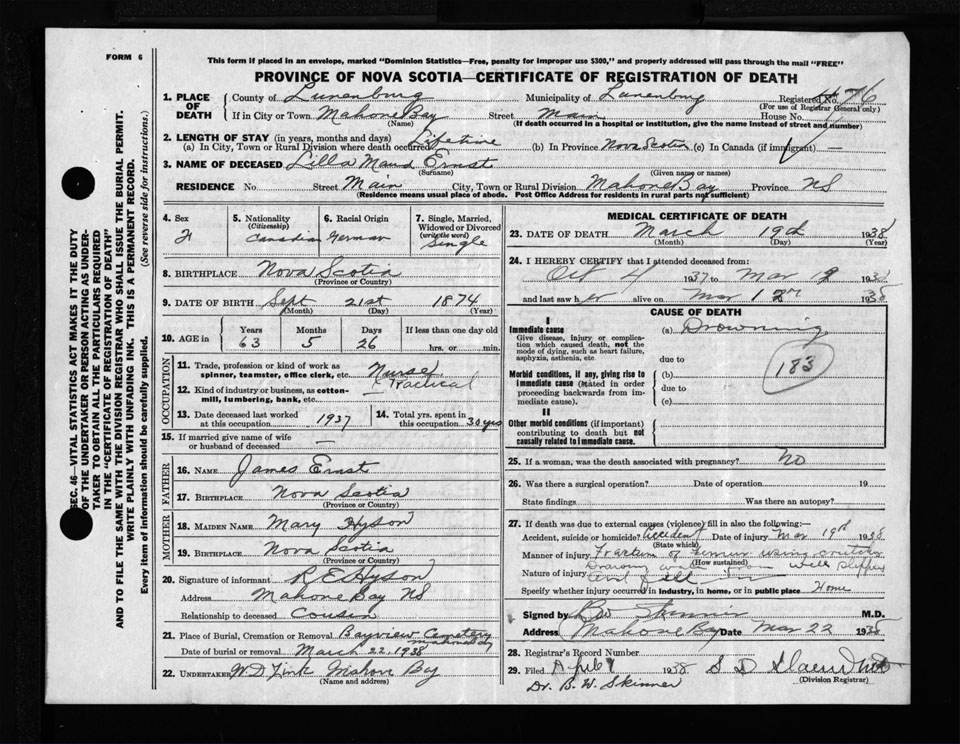 FORM 6
This form if placed in an envelope, marked "Dominion Statistics—Free, penalty for improper use $300," and properly addressed will pass through the mail "FREE"
PROVINCE OF NOVA SCOTIA—CERTIFICATE OF REGISTRATION OF DEATH
SEC. 46—VITAL STATISTICS ACT MAKES IT THE DUTY
OF THE UNDERTAKER OR PERSON ACTING AS UNDER-
TAKER TO OBTAIN ALL THE PARTICULARS REQUIRED
IN THE "CERTIFICATE OF REGISTRATION OF DEATH"
AND TO FILE THE SAME WITH THE DIVISION REGISTRAR WHO SHALL ISSUE THE BURIAL PERMIT.
WRITE PLAINLY WITH UNFADING INK. THIS IS A PERMANENT RECORD.
Every item of information should be carefully supplied. (See reverse side for instructions.)
1. PLACE OF DEATH County of Lunenburg Municipality of Lunenburg Registered No. 476
(For use of Registrar General only)
If in City or Town Mahone Bay Street Main House No.
(Name) (If death occurred in a hospital or institution, give the name instead of street and number)
2. LENGTH OF STAY (in years, months and days)
(a) In City, Town or Rural Division where death occurred Lifetime (b) In Province Nova Scotia (c) In Canada (if immigrant) —
3. NAME OF DECEASED Lilla Maud Ernst
(Surname) (Given name or names)
RESIDENCE No. Street Main City, Town or Rural Division Mahone Bay Province NS
(Residence means usual place of abode. Post Office Address for residents in rural parts not sufficient)
4. Sex F
5. Nationality (Citizenship) Canadian
6. Racial Origin German
7. Single, Married, Widowed or Divorced (write the word) Single
8. BIRTHPLACE Nova Scotia
(Province or Country)
9. DATE OF BIRTH Sept 21st 1874
(Month) (Day) (Year)
10. AGE in Years 63 Months 5 Days 26 If less than one day old hrs. or min.
OCCUPATION
11. Trade, profession or kind of work as spinner, teamster, office clerk, etc. Nurse (Practical)
12. Kind of industry or business, as cotton-mill, lumbering, bank, etc. —
13. Date deceased last worked at this occupation 1937
14. Total yrs. spent in this occupation 30 yrs
15. If married give name of wife or husband of deceased —
FATHER
16. NAME James Ernst
17. BIRTHPLACE Nova Scotia
(Province or Country)
MOTHER
18. MAIDEN NAME Mary Hyson
19. BIRTHPLACE Nova Scotia
(Province or Country)
20. Signature of informant R E Hyson
Address Mahone Bay NS
Relationship to deceased Cousin
21. Place of Burial, Cremation or Removal Bayview Cemetery Mahone Bay
Date of burial or removal March 22, 1938
22. UNDERTAKER W D Zink Mahone Bay
(Name and address)
MEDICAL CERTIFICATE OF DEATH
23. DATE OF DEATH March 19th 1938
(Month) (Day) (Year)
24. I HEREBY CERTIFY that I attended deceased from:
Oct 4 1937 to Mar 19 1938
and last saw her alive on Mar 1938
CAUSE OF DEATH
I
Immediate cause (a) Drowning
Give disease, injury or complication which caused death, not the mode of dying, such as heart failure, asphyxia, asthenia, etc.
due to
183
Morbid conditions, if any, giving rise to immediate cause (stated in order proceeding backwards from immediate cause).
(b)
due to
(c)
II
Other morbid conditions (if important) contributing to death but not causally related to immediate cause.
25. If a woman, was the death associated with pregnancy? No
26. Was there a surgical operation? Date of operation 19
State findings Was there an autopsy?
27. If death was due to external causes (violence) fill in also the following:—
Accident, suicide or homicide? Accident Date of injury Mar 19th 1938
(State which)
Manner of injury Fracture of femur using crutches
(How sustained)
Nature of injury Drawing water from well slipped and fell in
Specify whether injury occurred in industry, in home, or in public place Home
Signed by B W Skinner M.D.
Address Mahone Bay Date Mar 22 1938
28. Registrar's Record Number
29. Filed April 1938 S D
(Division Registrar)
Dr. B. W. Skinner